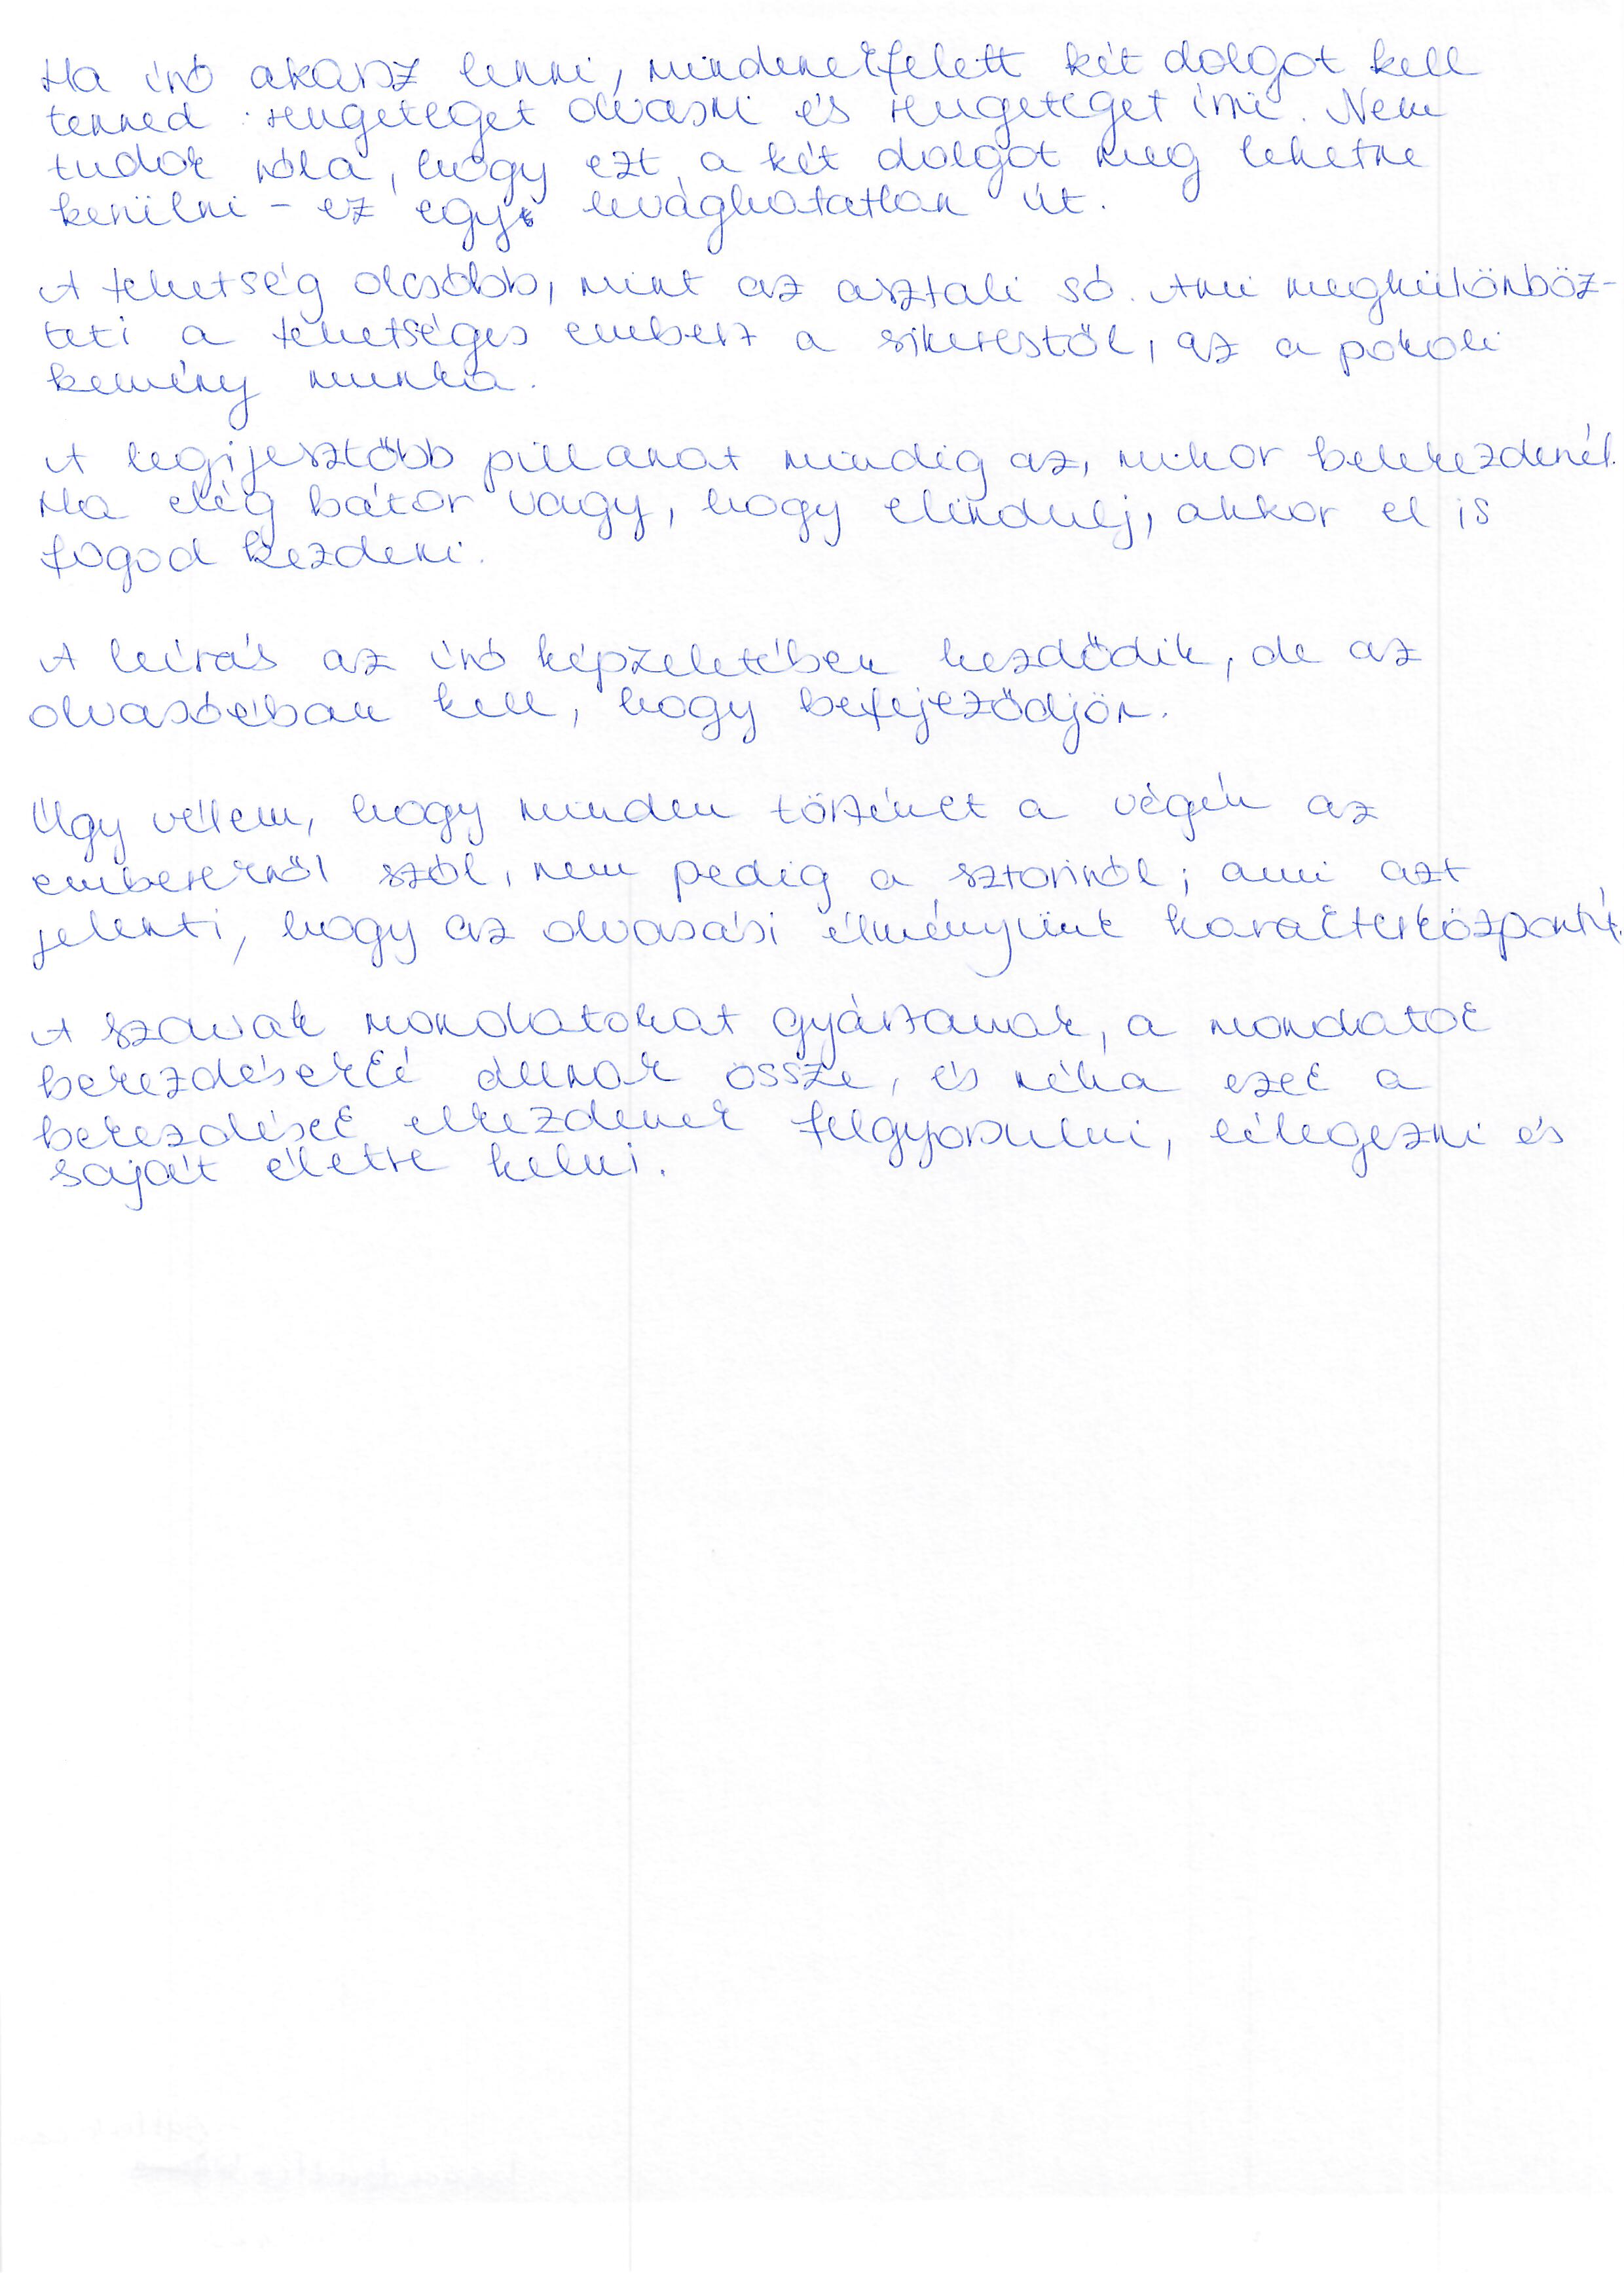 Ha író akarsz lenni, mindenekfelett két dolgot kell
tenned: rengeteget olvasni és rengeteget írni. Nem
tudok róla, hogy ezt a két dolgot meg lehetne
kerülni - ez egy levághatatlan út.
A tehetség olcsóbb, mint az asztali só. Ami megkülönböz-
teti a tehetséges embert a sikerestől, az a pokoli
kemény munka.
A legijesztőbb pillanat mindig az, mikor belekezdenél.
Ha elég bátor vagy, hogy elindulj, akkor el is
fogod kezdeni.
A leírás az író képzeletében kezdődik, de az
olvasóéban kell, hogy befejeződjön.
Úgy vélem, hogy minden történet a végén az
emberekről szól, nem pedig a sztoriról; ami azt
jelenti, hogy az olvasási élményünk karakterközpontú.
A szavak mondatokat gyártanak, a mondatok
bekezdésekké állnak össze, és néha ezek a
bekezdések elkezdenek felgyorsulni, lélegezni és
saját életre kelni.